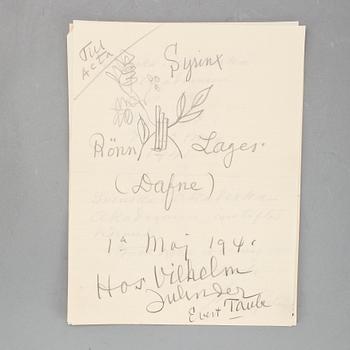 Till
Acta
Syrinx
Rönn Lager.
(Dafne)
1a Maj 194
Hos Vilhelm
Julinder
Evert Taube